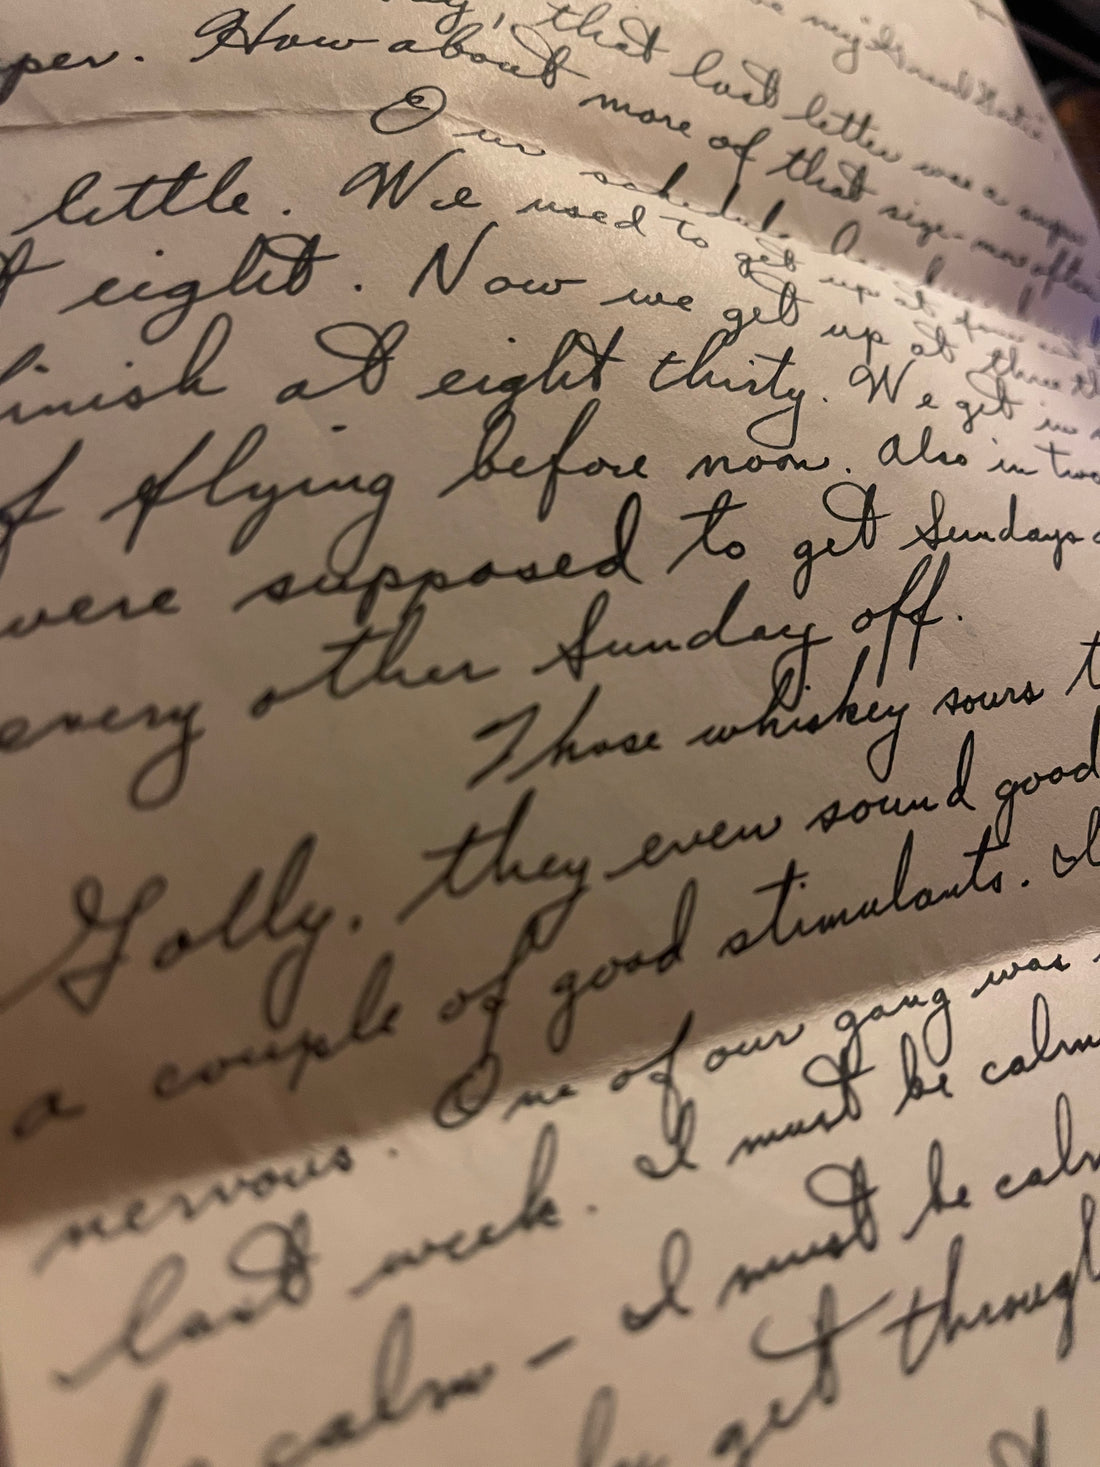 that last letter was a
per. How about more of that size - more often
Our schedule
little. We used to get up at four
eight. Now we get up at three
finish at eight thirty. We get in
of flying before noon. Also in two
were supposed to get Sundays
every other Sunday off.
Those whiskey sours
Golly, they even sound good
a couple of good stimulants. I
nervous. One of our gang was
last week. I must be calm
be calm - I must be calm
get through